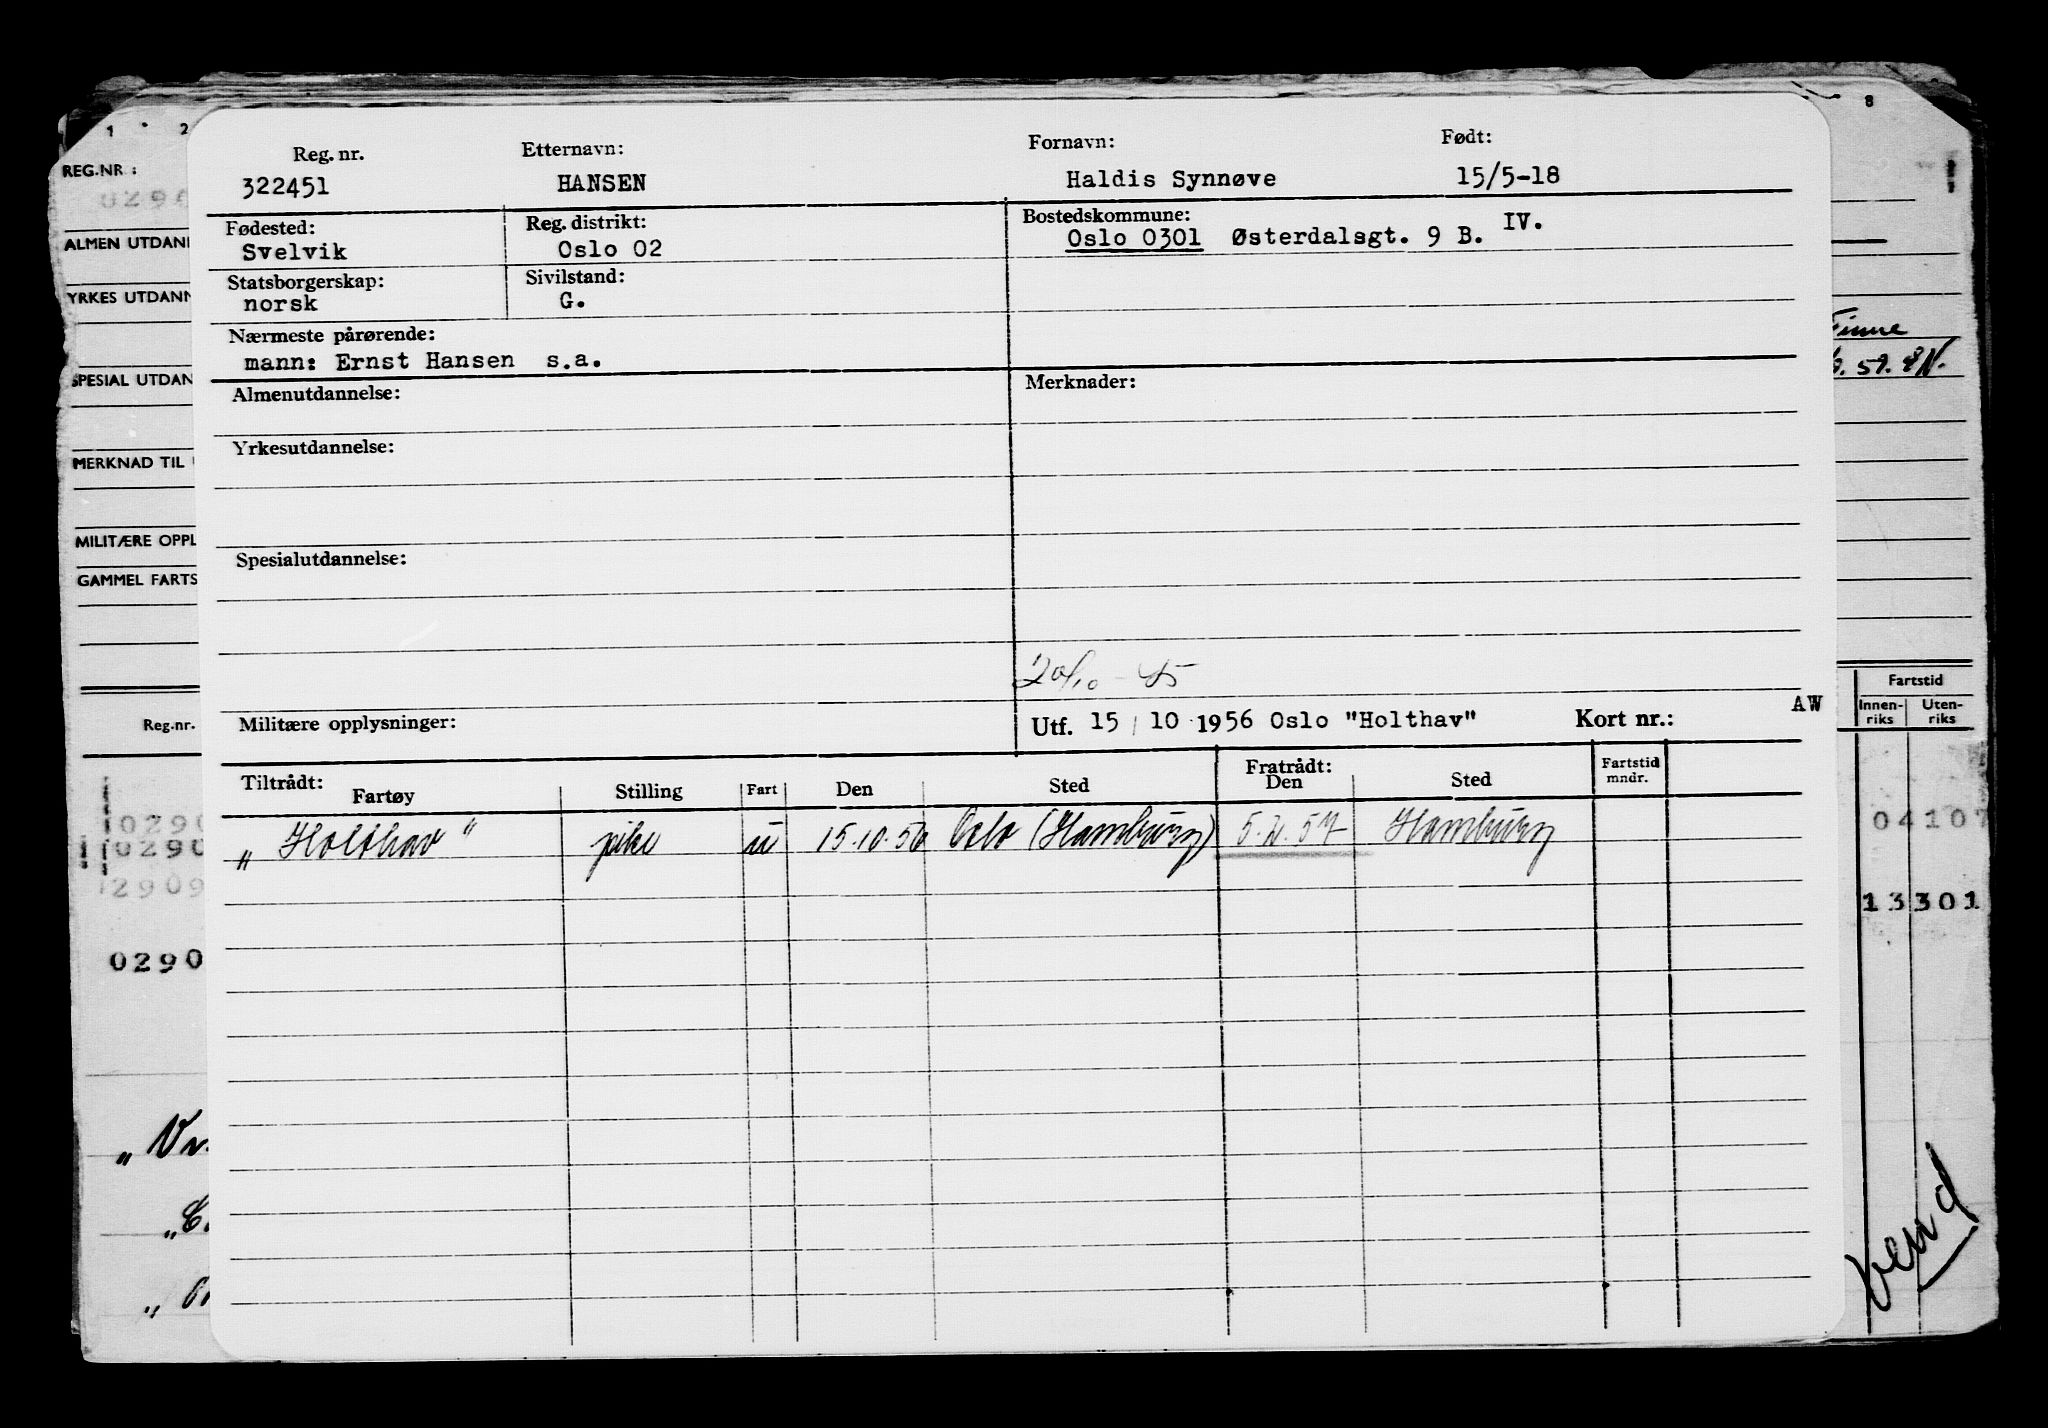 1 2 8
REG.NR.:
ALMEN UTDAN
YRKES UTDANN
SPESIAL UTDAN
MERKNAD TIL
MILITÆRE OPPL
GAMMEL FARTS
Reg.nr.
0290
0290
2909
0290
Reg. nr. Etternavn: Fornavn: Født:
322451 HANSEN Haldis Synnøve 15/5-18
Fødested: Reg. distrikt: Bostedskommune:
Svelvik Oslo 02 Oslo 0301 Østerdalsgt. 9 B. IV.
Statsborgerskap: Sivilstand:
norsk G.
Nærmeste pårørende:
mann: Ernst Hansen s.a.
Almenutdannelse: Merknader:
Yrkesutdannelse:
Spesialutdannelse:
20/10 - 45
Militære opplysninger: Utf. 15/10 1956 Oslo "Holthav" Kort nr.: AW
Tiltrådt: Fratrådt: Fartstid
Fartøy Stilling Fart Den Sted Den Sted mndr.
"Holthav" pike u 15.10.56 Oslo (Hamburg) 5.2.57 Hamburg
Finne
59.
Fartstid
Innen-riks Uten-riks
04107
13301
Vend